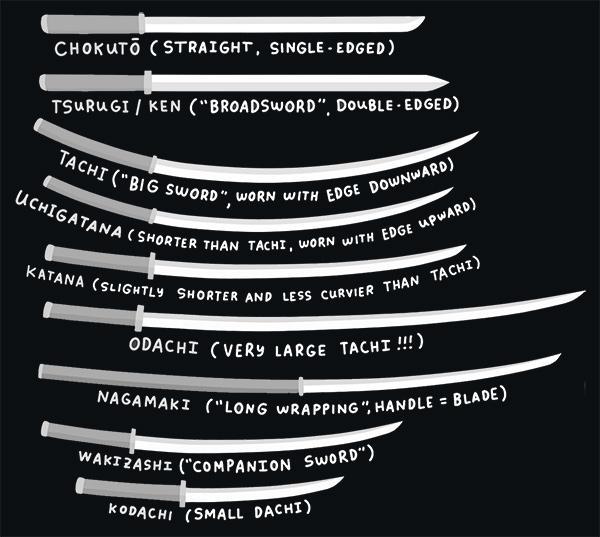 CHOKUTŌ (STRAIGHT, SINGLE-EDGED)
TSURUGI / KEN ("BROADSWORD", DOUBLE-EDGED)
TACHI ("BIG SWORD", WORN WITH EDGE DOWNWARD)
UCHIGATANA (SHORTER THAN TACHI, WORN WITH EDGE UPWARD)
KATANA (SLIGHTLY SHORTER AND LESS CURVIER THAN TACHI)
ODACHI (VERY LARGE TACHI!!!)
NAGAMAKI ("LONG WRAPPING", HANDLE = BLADE)
WAKIZASHI ("COMPANION SWORD")
KODACHI (SMALL DACHI)